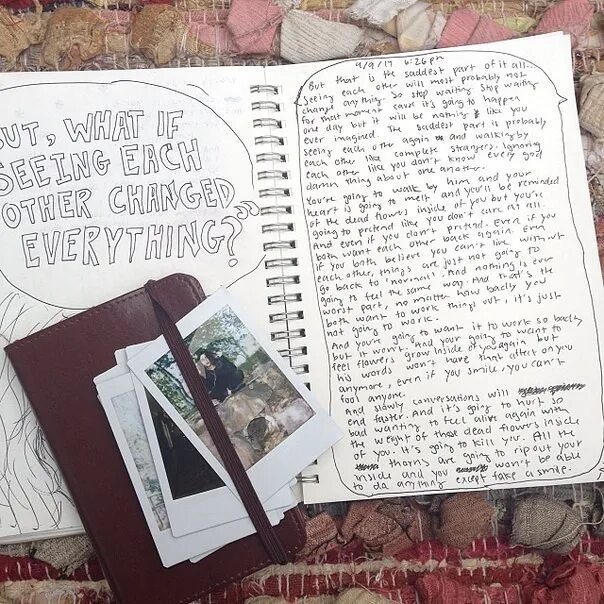 BUT, WHAT IF
SEEING EACH
OTHER CHANGED
EVERYTHING?
9/9/14 6:26 pm
But that is the saddest part of it all.
Seeing each other will most probably not
change anything. So stop waiting. Stop waiting
for that moment cause it's going to happen
one day but it will be nothing like you
ever imagined. The saddest part is probably
seeing each other again and walking by
each other like complete strangers. Ignoring
each other like you don't know every god
damn thing about one another.
You're going to walk by him and your
heart is going to melt and you'll be reminded
of the dead flowers inside of you but you're
going to pretend like you don't care at all.
And even if you don't pretend. Even if you
both want each other back again. Even
if you both believe you can't live without
each other, things are just not going to
go back to normal. And nothing is ever
going to feel the same way. And that's the
worst part, no matter how badly you
both want to work things out, it's just
not going to work.
And you're going to want it to work so badly
but it won't. And your going to want to
feel flowers grow inside of you again but
his words won't have that affect on you
anymore, even if you smile, you can't
fool anyone.
And slowly conversations will
end faster. And it's going to hurt so
bad wanting to feel alive again with
the weight of those dead flowers inside
of you. It's going to kill you. All the
thorns are going to rip out your
inside until you won't be able
to do anything except fake a smile.